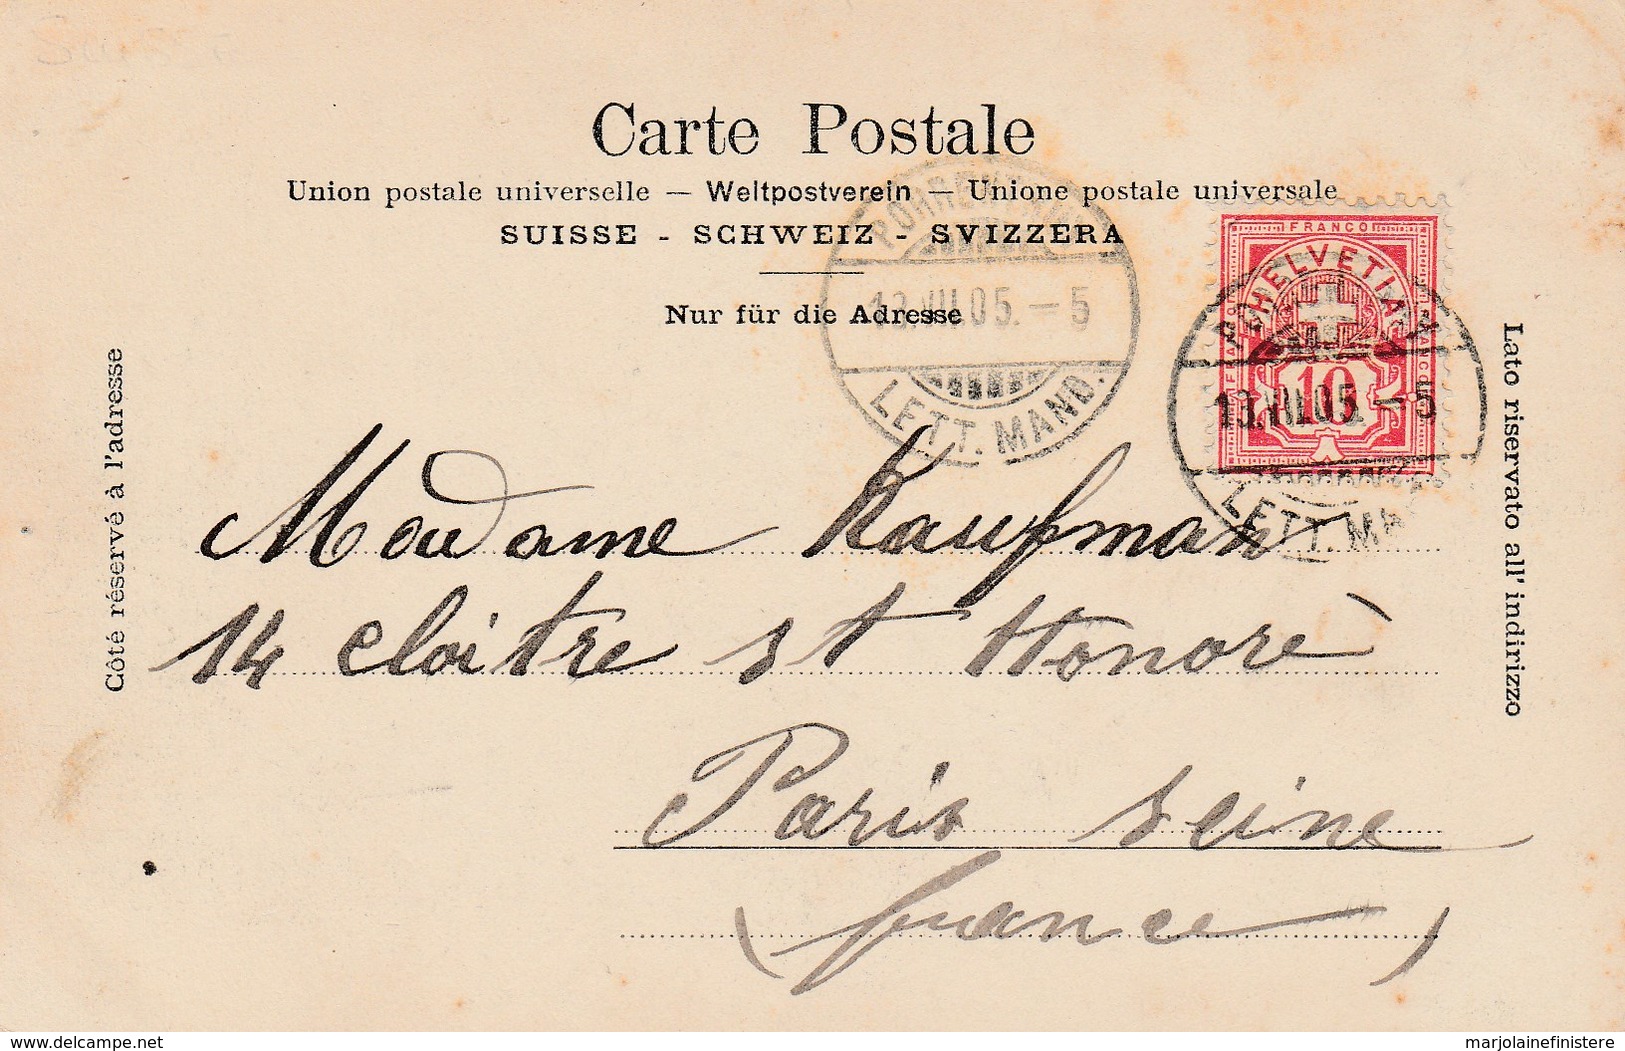 Carte Postale
Union postale universelle — Weltpostverein — Unione postale universale
SUISSE - SCHWEIZ - SVIZZERA
Nur für die Adresse
Côté réservé à l'adresse
Lato riservato all' indirizzo
13.VII.05.–5
LETT. MAND.
FRANCO
HELVETIA
10
13.VII.05.–5
LETT. MA
Madame Kaufman
14 cloitre st Honoré
Paris seine
(france)
delcampe.net
marjolainefinistere